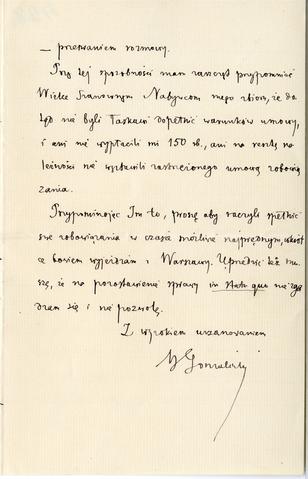 — przerwaniem rozmowy.
Przy tej sposobności mam zaszczyt przypomnieć
Wielce Szanownym Nabywcom mego zbioru, że do
tąd nie byli łaskawi dopełnić warunków umowy,
i ani nie wypłacili mi 150 rb., ani na resztę na
leżności nie wystawili zastrzeżonego umową zobowią
zania.
Przypominając Im to, proszę aby raczyli spełnić
swe zobowiązania w czasie możliwie najprędszym, wkrót
ce bowiem wyjeżdżam z Warszawy. Uprzedzić też mu
szę, że na pozostawienie sprawy in statu quo nie zga
dzam się i nie pozwolę.
Z wysokiem uszanowaniem